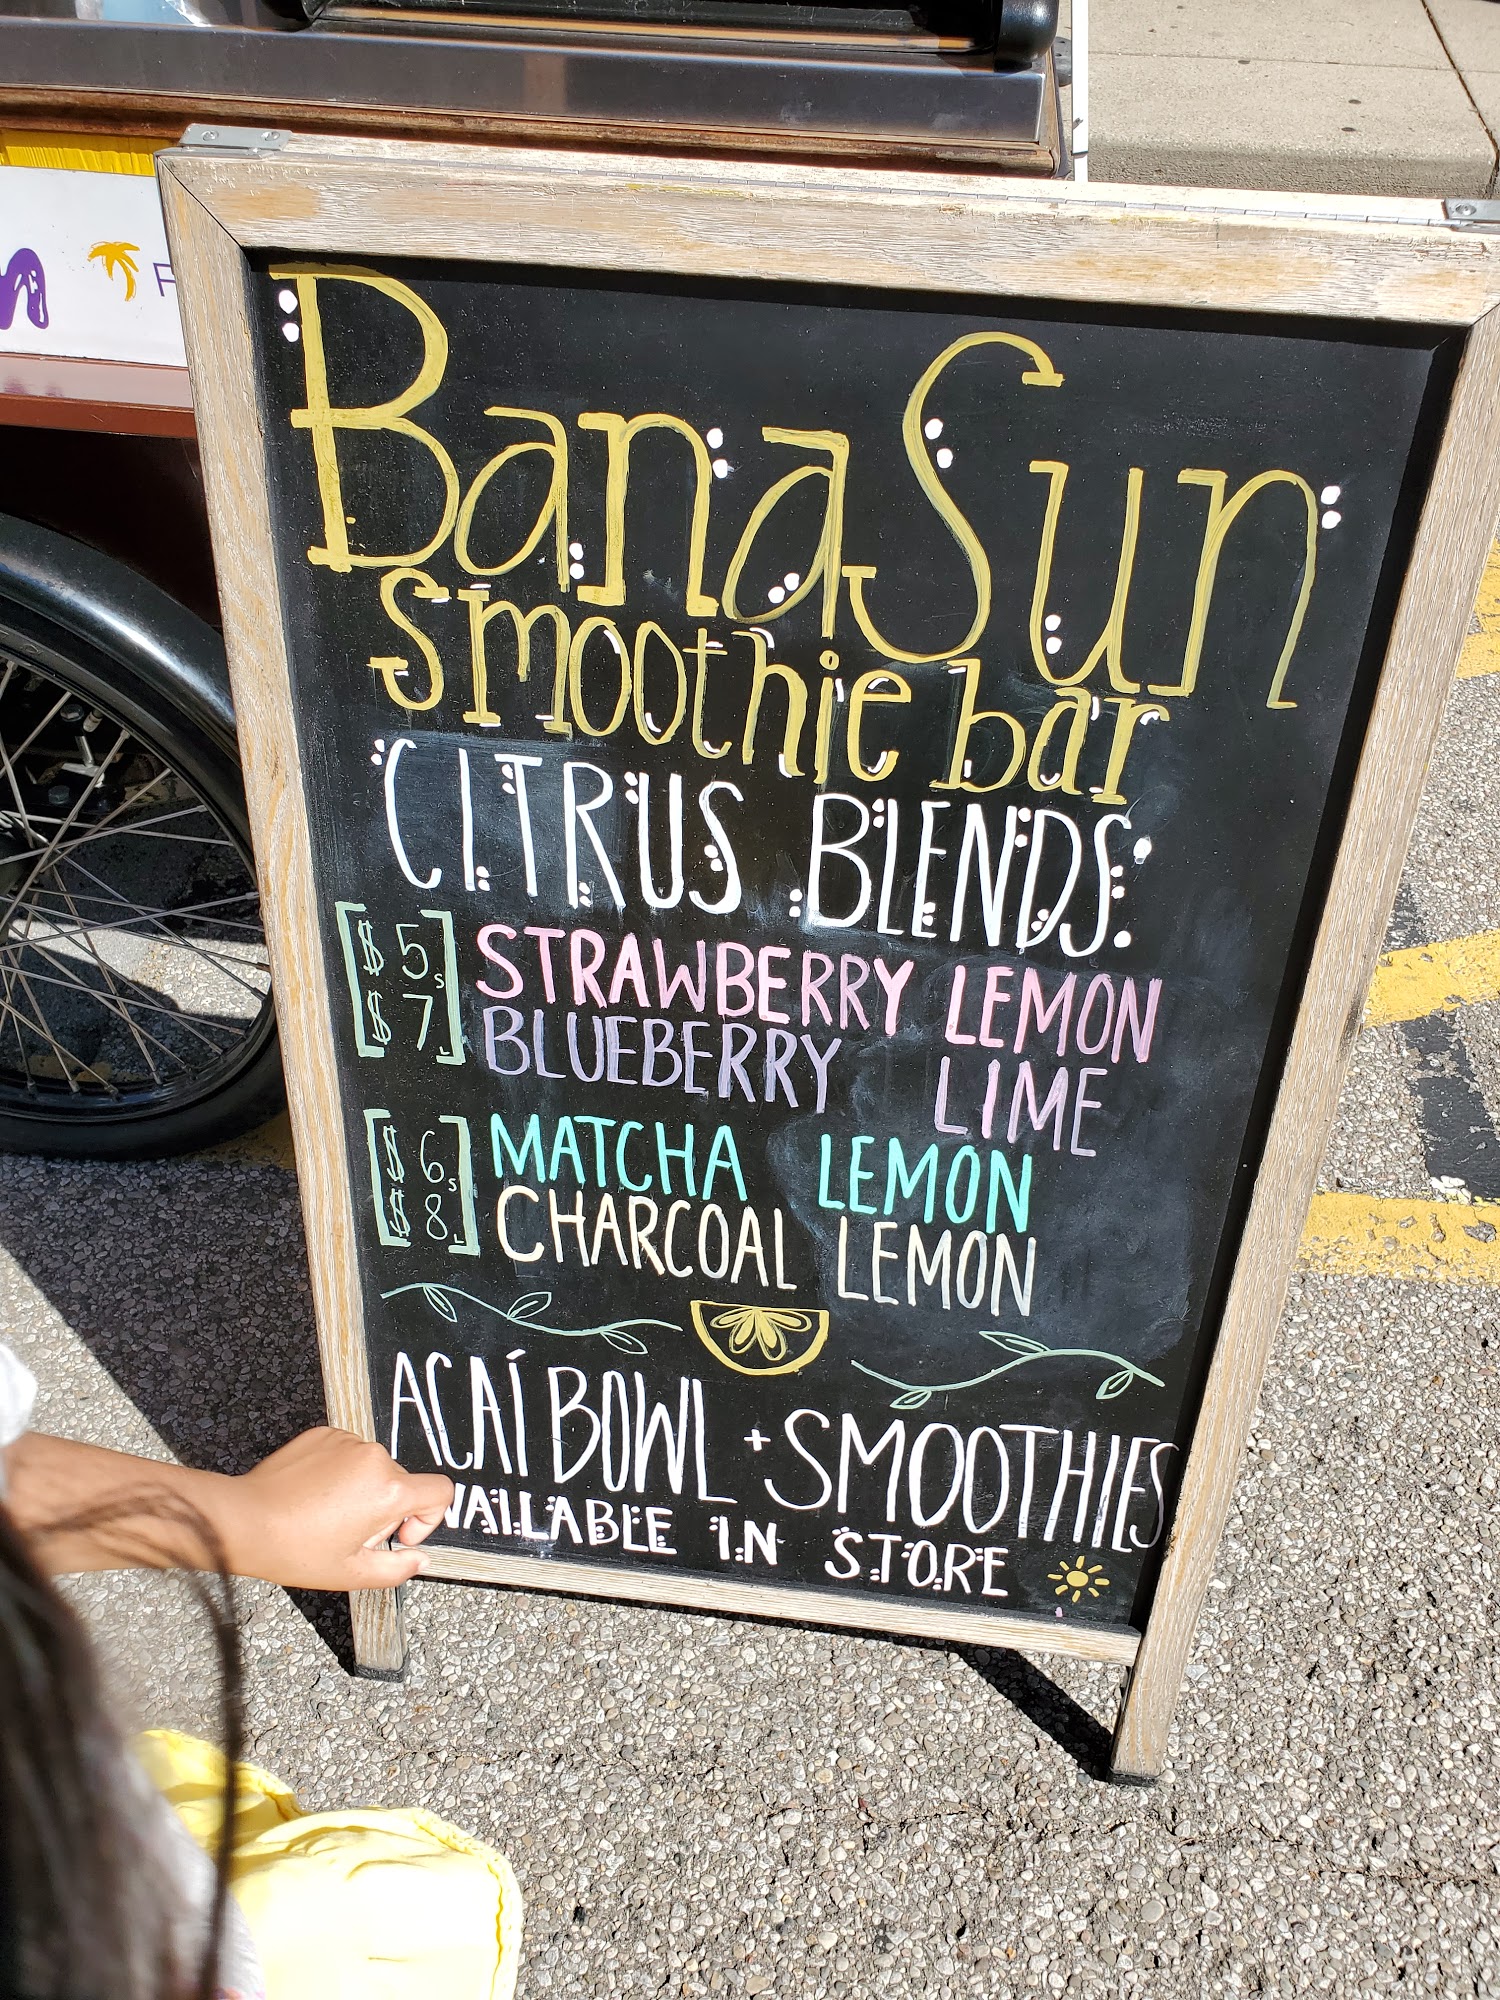 BanaSun
smoothie bar
CITRUS BLENDS
$5s STRAWBERRY LEMON
$7L BLUEBERRY LIME
$6s MATCHA LEMON
$8L CHARCOAL LEMON
ACAÍ BOWL + SMOOTHIES
AVAILABLE IN STORE